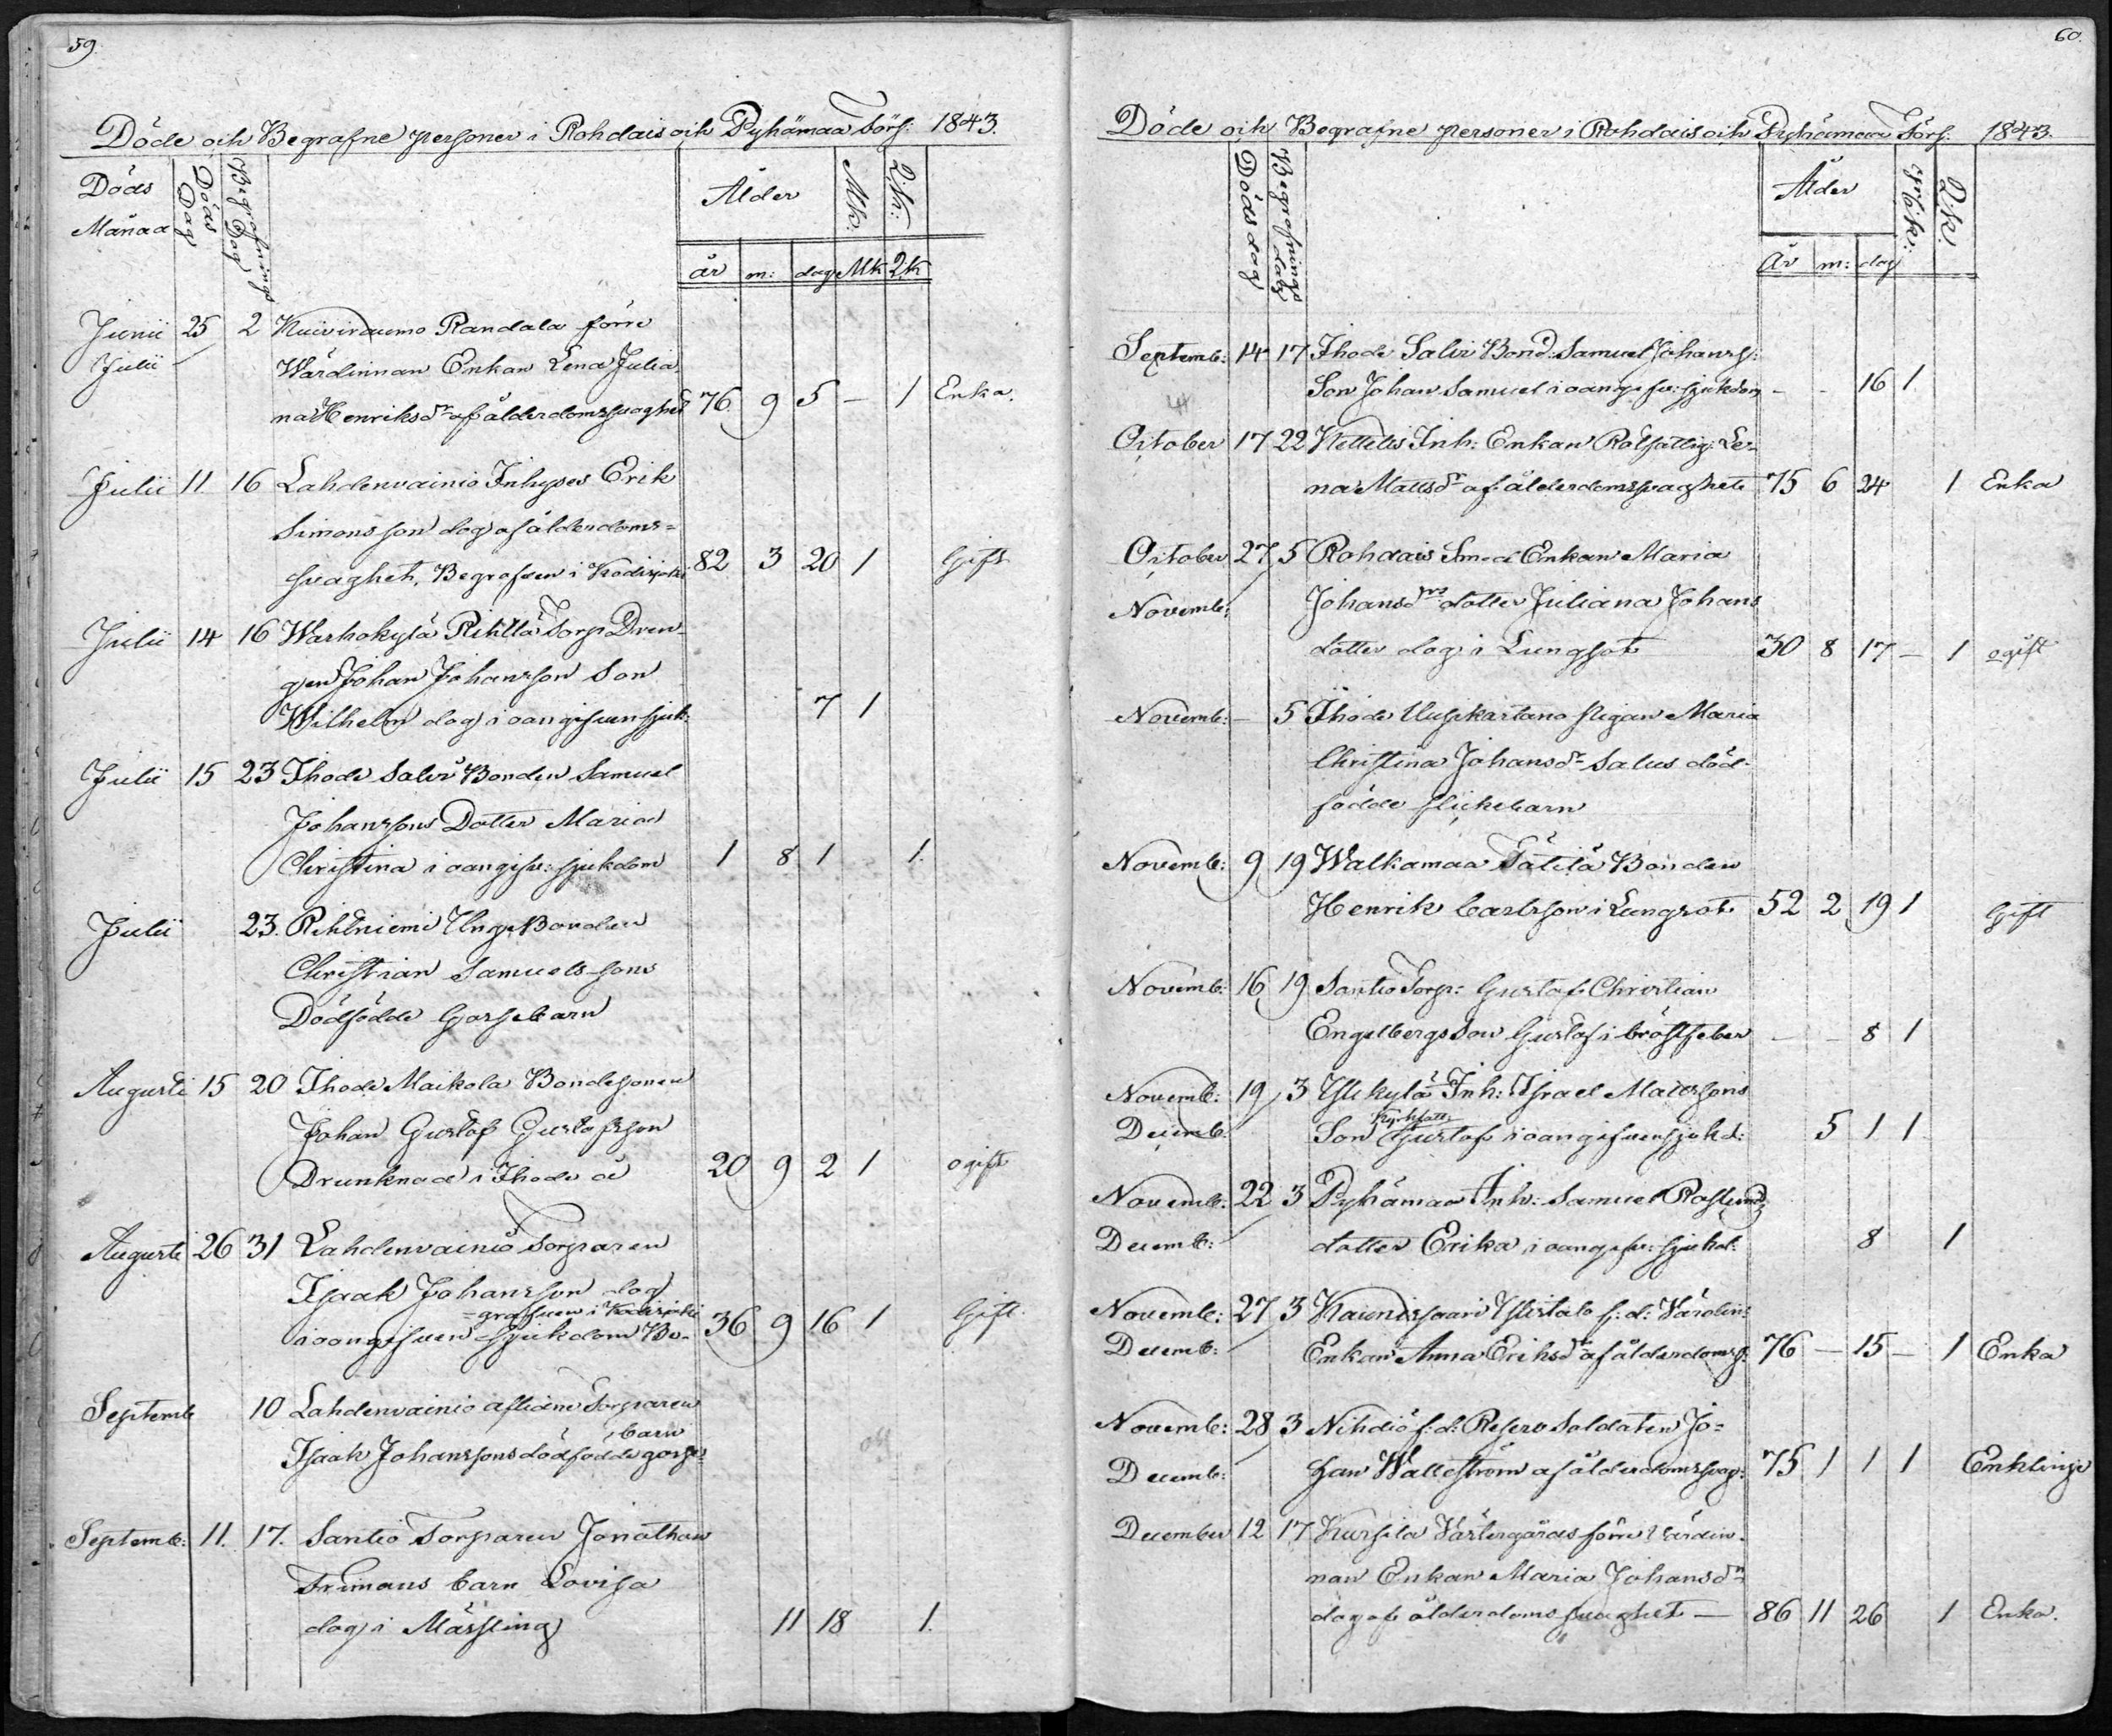 59.
Döde och Begrafne personer i Rohdais och Pyhämaa Förs: 1843.
Döds Månad
Döds Dag
Begrafnings Dag
Ålder
Mk:
Q:k:
år m: dag Mk Qk
Junii 25 2 Kuivirauma Randala förre
Julii Wärdinnan Enkan Lena Julia
na Henriksdr af ålderdomssvaghet 76 9 5 — 1 Enka.
Julii 11. 16 Lahdenvainio Inhyses Erik
Simonsson dog af ålderdoms=
svaghet, Begrafven i Kodisjoki 82 3 20 1 Gift
Julii 14 16 Warhokylä Rihtlä Torp Dren-
gen Johan Johansson Son
Wilhelm dog i oangifven sjuk: 7 1
Julii 15 23 Ihode Salvi Bonden Samuel
Johanssons Dotter Maria
Christina i oangifv: sjukdom 1 8 1 1.
Julii 23. Rihtniemi Unga Bonden
Christian Samuels-sons
Dödfödde Gossebarn
Augusti 15 20 Ihode Maikola Bondesonen
Johan Gustaf Gustafsson
Drunknad i Ihode å 20 9 2 1 ogift
Augusti 26 31 Lahdenvainio Torparen
Isaak Johansson dog
=grafven i Kodisjoki
i oangifven sjukdom Be- 36 9 16 1 Gift
Septemb 10 Lahdenvainio aflidne Torparen
barn
Isaak Johanssons dödfödde gosse=
Septemb: 11. 17. Santio Torparen Jonathan
Frimans barn Lovisa
dog i Mässling 11 18 1.
60.
Döde och Begrafne personer i Rohdais och Pyhämaa Förs: 1843.
Döds dag
Begrafnings dag
Ålder
Q:k:
År m: dag
Septemb: 14 17 Ihode Salvi Bond: Samuel Johanss:
Son Johan Samuel i oangifv: sjukdom - - 16 1
October 17 22 Kettelis Inh: Enkan Rotfattig: Le-
na Mattsdr af ålderdomssvaghet 75 6 24 1 Enka
October 27 5 Rohdais Smed Enkan Maria
Novemb: Johansdrs dotter Juliana Johans
dotter dog i Lungsot 30 8 17 — 1 ogift
Novemb: — 5 Ihode Uusikartano Pigan Maria
Christina Johansdr Salus död-
födde flickebarn
Novemb: 9 19 Walkamaa Tätilä Bonden
Henrik Carlsson i Lungsot 52 2 19 1 Gift
Novemb: 16 19 Santio Torp: Gustaf Christian
Engelbergs Son Gustaf i bröstfeber - - 8 1
Novemb: 19 3 Ylikylä Inh: Israel Matssons
Decemb. Son Gustaf i oangifven sjukd: 5 1 1
Novemb: 22 3 Pyhämaa Inh: Samuel Roslunds
Decemb: dotter Erika i oangifv: sjukd: 8 1
Novemb: 27 3 Kaunissaari Ylistalo f: d: Värdin:
Decemb: Enkan Anna Eriksdr af ålderdomss: 76 — 15 — 1 Enka
Novemb: 28 3 Nihdiö f: d: Reserv Soldaten Jo=
Decemb: han Wallström af ålderdomssvag: 75 1 1 1 Enkling
December 12 17 Kursila Västergårds förre Värdin-
nan Enkan Maria Johansdr
dog af ålderdoms svaghet — 86 11 26 1 Enka.